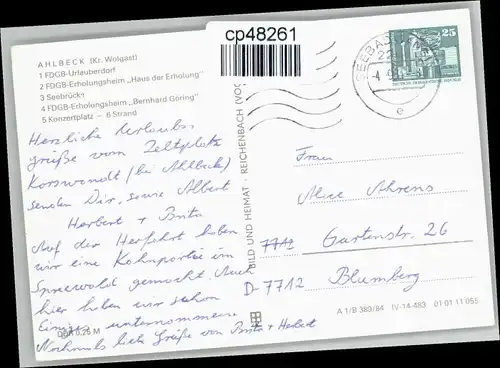 cp48261
AHLBECK (Kr. Wolgast)
1 FDGB-Urlauberdorf
2 FDGB-Erholungsheim „Haus der Erholung"
3 Seebrücke
4 FDGB-Erholungsheim „Bernhard Göring"
5 Konzertplatz – 6 Strand
Herzliche Urlaubs-
grüße vom Zeltplatz
Korswandt (bei Ahlbeck)
senden Dir, sowie Albert
Herbert + Brita
Auf der Herfahrt haben
wir eine Kahnpartie im
Spreewald gemacht. Auch
hier haben wir schon
Einiges unternommen.
Nochmals liebe Grüße von Brita + Herbert
DDR 0,25 M
BILD UND HEIMAT · REICHENBACH (VOG
SEEBAD
25
DEUTSCHE DEMOKRATISCHE REPUBLIK
e
Frau
Alice Ahrens
7712 Gartenstr. 26
D-7712 Blumberg
A 1/B 389/84 IV-14-483 01 01 11 055